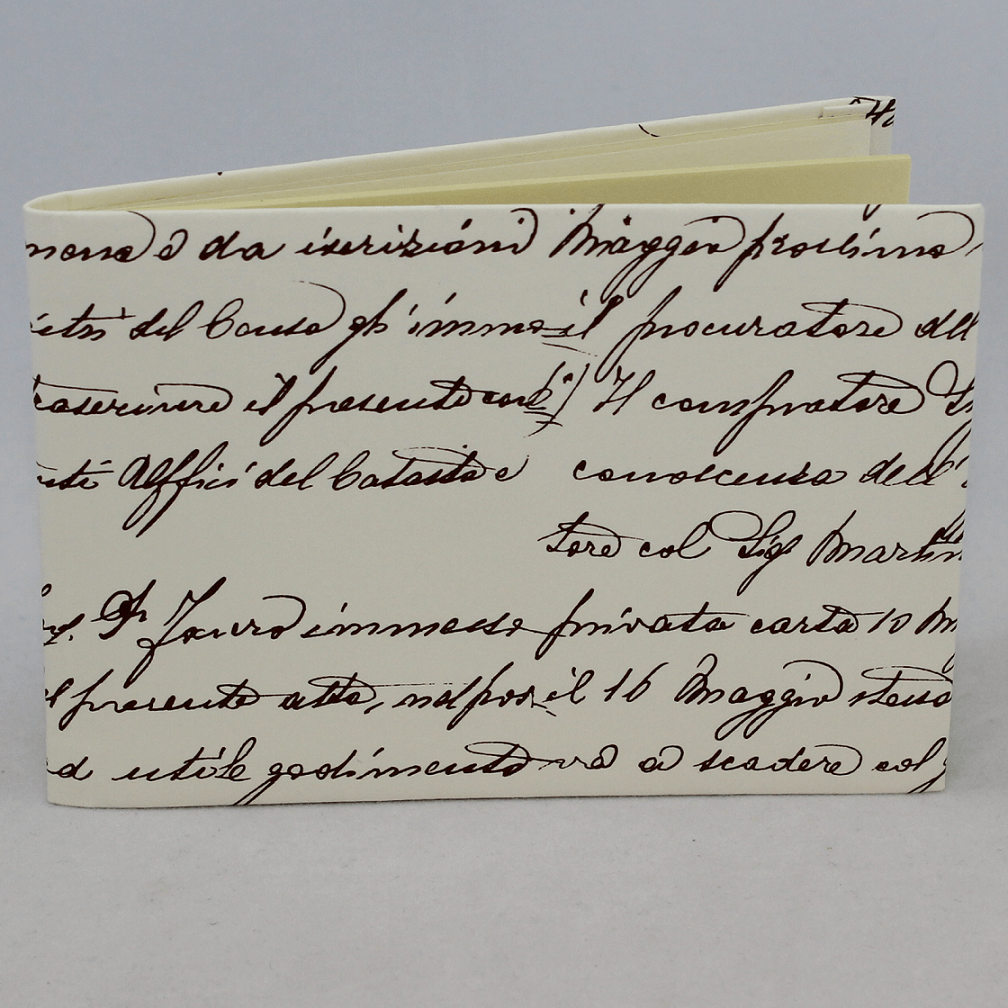 e da iscrizioni Maggio prossimo
del Censo gl'immo il procuratore del
il presente con Il compratore
Uffici del Catasto e conoscenza dell'
tore col Sig Martin
immesso privata carta 10 M
presente atto, nel il 16 Maggio stesso
d utile godimento a scadere col